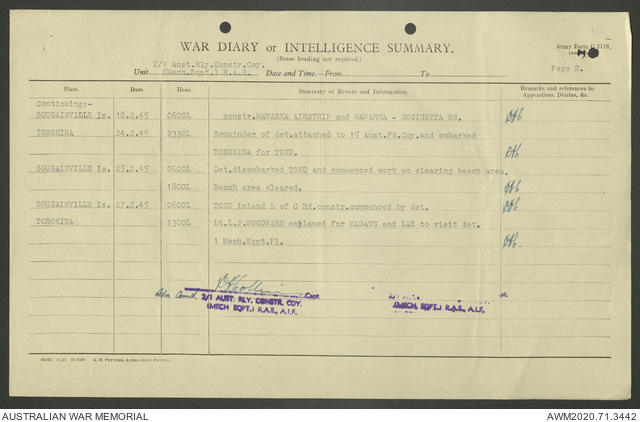 WAR DIARY OR INTELLIGENCE SUMMARY.
(Erase heading not required.)
Army Form C 2118.
2/1 Aust.Rly.Constr.Coy.
Unit (Mech.Eqpt.) R.A.E. Date and Time.—From To
Page 2.
Place. Date. Hour. Summary of Events and Information. Remarks and references to Appendices, Diaries, &c.
Continuing:-
BOUGAINVILLE Is. 18.2.45 0600L constr.MAWARKA AIRSTRIP and MAWARKA - MOSIGETTA Rd.
TOROKINA 24.2.45 2330L Remainder of det.attached to 15 Aust.Fd.Coy.and embarked
TOROKINA for TOKO.
BOUGAINVILLE Is. 25.2.45 0600L Det.disembarked TOKO and commenced work on clearing beach area.
1800L Beach area cleared.
BOUGAINVILLE Is. 27.2.45 0600L TOKO inland L of C Rd.constr.commenced by det.
TOROKINA 1300L Lt.L.J.WOODWARD emplaned for MADANG and LAE to visit det.
1 Mech.Eqpt.Pl.
Capt.
2/1 AUST. RLY. CONSTR. COY.
(MECH EQPT.) R.A.E., A.I.F.
2/1
(MECH. EQPT.) R.A.E., A.I.F.
AUSTRALIAN WAR MEMORIAL
AWM2020.71.3442